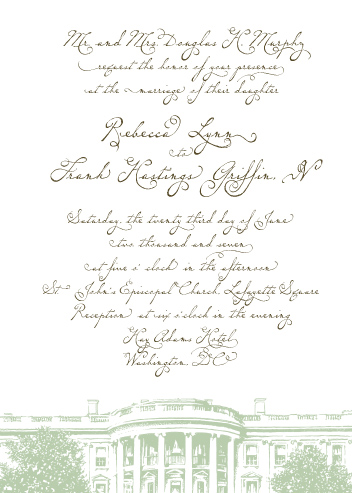 Mr. and Mrs. Douglas H. Murphy
request the honor of your presence
at the marriage of their daughter
Rebecca Lynn
to
Frank Hastings Griffin, IV
Saturday, the twenty third day of June
two thousand and seven
at five o'clock in the afternoon
St. John's Episcopal Church, Lafayette Square
Reception at six o'clock in the evening
Hay Adams Hotel
Washington, DC